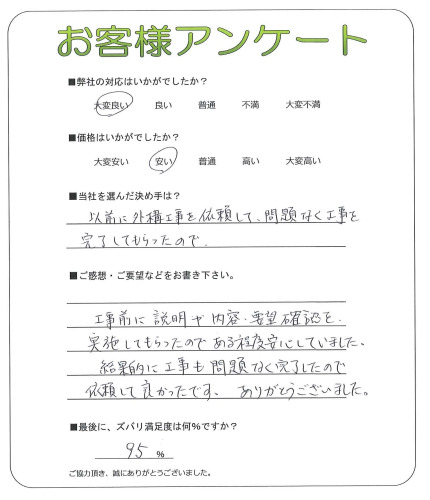 お客様アンケート
■弊社の対応はいかがでしたか？
大変良い　良い　普通　不満　大変不満
■価格はいかがでしたか？
大変安い　安い　普通　高い　大変高い
■当社を選んだ決め手は？
以前に外構工事を依頼して、問題なく工事を
完了してもらったので。
■ご感想・ご要望などをお書き下さい。
工事前に説明や内容・要望確認を
実施してもらったのである程度安心していました、
結果的に工事も問題なく完了したので
依頼して良かったです、ありがとうございました。
■最後に、ズバリ満足度は何％ですか？
95 ％
ご協力頂き、誠にありがとうございました。